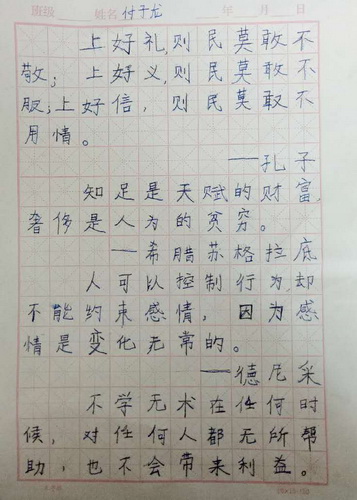 班级 姓名 付于龙 年 月 日
上好礼,则民莫敢不
敬;上好义,则民莫敢不
服;上好信,则民莫敢不
用情。
——孔子
知足是天赋的财富,
奢侈是人为的贫穷。
——希腊苏格拉底
人可以控制行为,却
不能约束感情,因为感
情是变化无常的。
——德尼采
不学无术在任何时
候,对任何人都无所帮
助,也不会带来利益。